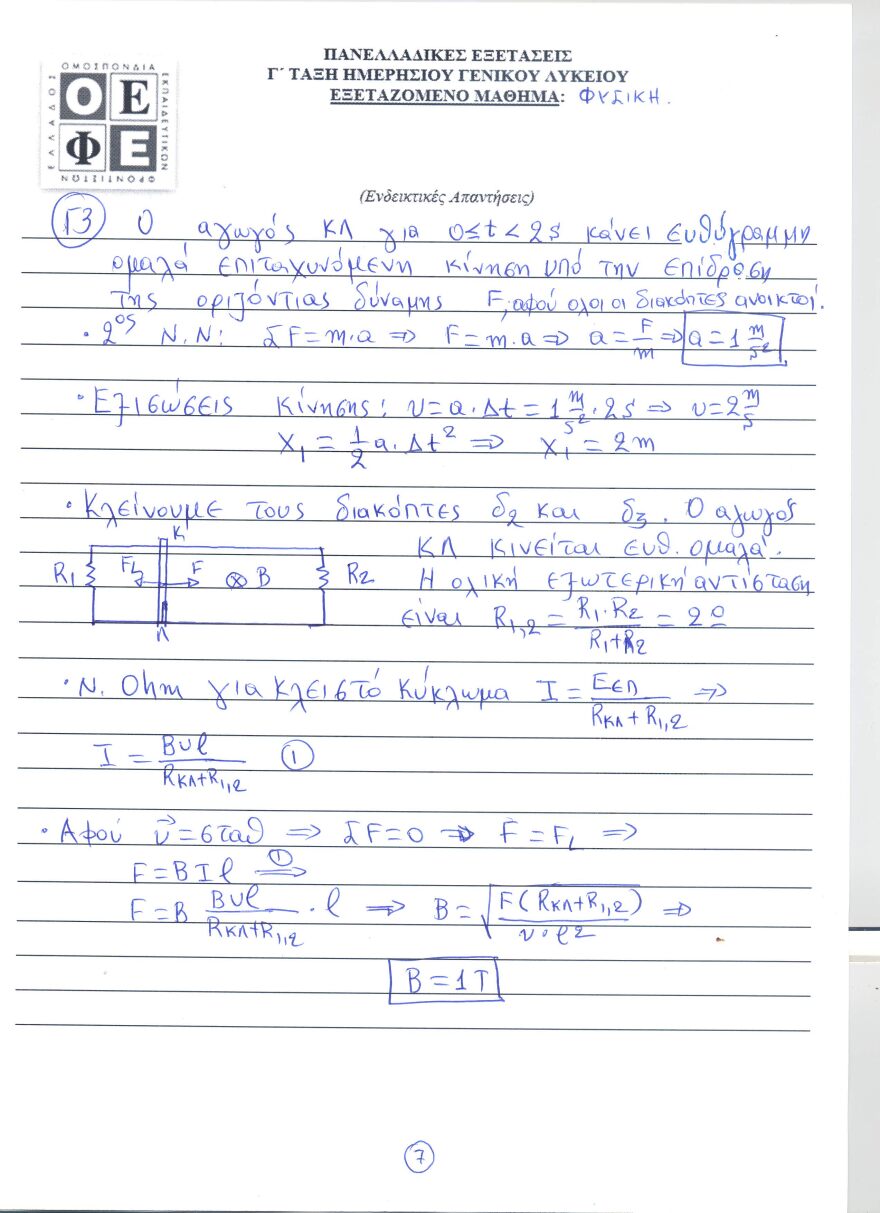 ΟΜΟΣΠΟΝΔΙΑ
ΕΚΠΑΙΔΕΥΤΙΚΩΝ
ΦΡΟΝΤΙΣΤΩΝ
ΕΛΛΑΔΟΣ
Ο Ε
Φ Ε
ΠΑΝΕΛΛΑΔΙΚΕΣ ΕΞΕΤΑΣΕΙΣ
Γ΄ ΤΑΞΗ ΗΜΕΡΗΣΙΟΥ ΓΕΝΙΚΟΥ ΛΥΚΕΙΟΥ
ΕΞΕΤΑΖΟΜΕΝΟ ΜΑΘΗΜΑ: ΦΥΣΙΚΗ.
(Ενδεικτικές Απαντήσεις)
Γ3 Ο αγωγός ΚΛ για 0≤t<2s κάνει ευθύγραμμη
ομαλά επιταχυνόμενη κίνηση υπό την επίδραση
της οριζόντιας δύναμης F, αφού όλοι οι διακόπτες ανοικτοί.
• 2ος Ν.Ν: ΣF=m·a ⇒ F=m·a ⇒ a=F/m ⇒ a=1 m/s²
• Εξισώσεις κίνησης: υ=a·Δt=1 m/s²·2s ⇒ υ=2 m/s
x₁ = 1/2 a·Δt² ⇒ x₁ = 2m
• Κλείνουμε τους διακόπτες δ₂ και δ₃. Ο αγωγός
ΚΛ κινείται ευθ. ομαλά.
Κ
R₁ F_L F ⊗ B R₂
Λ
Η ολική εξωτερική αντίσταση
είναι R₁,₂ = R₁·R₂/(R₁+R₂) = 2Ω
• Ν. Ohm για κλειστό κύκλωμα I = Eεπ/(RΚΛ+R₁,₂) ⇒
I = Bυℓ/(RΚΛ+R₁,₂) ①
• Αφού υ⃗=σταθ ⇒ ΣF=0 ⇒ F=F_L ⇒
F=BIℓ ①⇒
F=B Bυℓ/(RΚΛ+R₁,₂)·ℓ ⇒ B=√(F(RΚΛ+R₁,₂)/(υ·ℓ²)) ⇒
B=1T
7